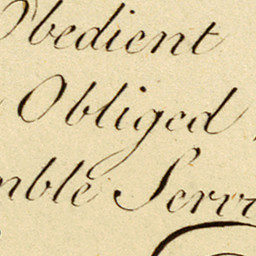 Obedient
Obliged
mble Serv